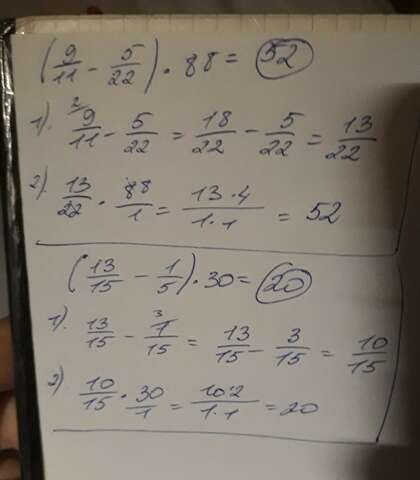 (9/11 - 5/22) · 88 = 52
1). 2 9/11 - 5/22 = 18/22 - 5/22 = 13/22
2). 13/22 · 88/1 = 13·4/1·1 = 52
(13/15 - 1/5) · 30 = 20
1). 13/15 - 3 1/15 = 13/15 - 3/15 = 10/15
2) 10/15 · 30/1 = 10·2/1·1 = 20